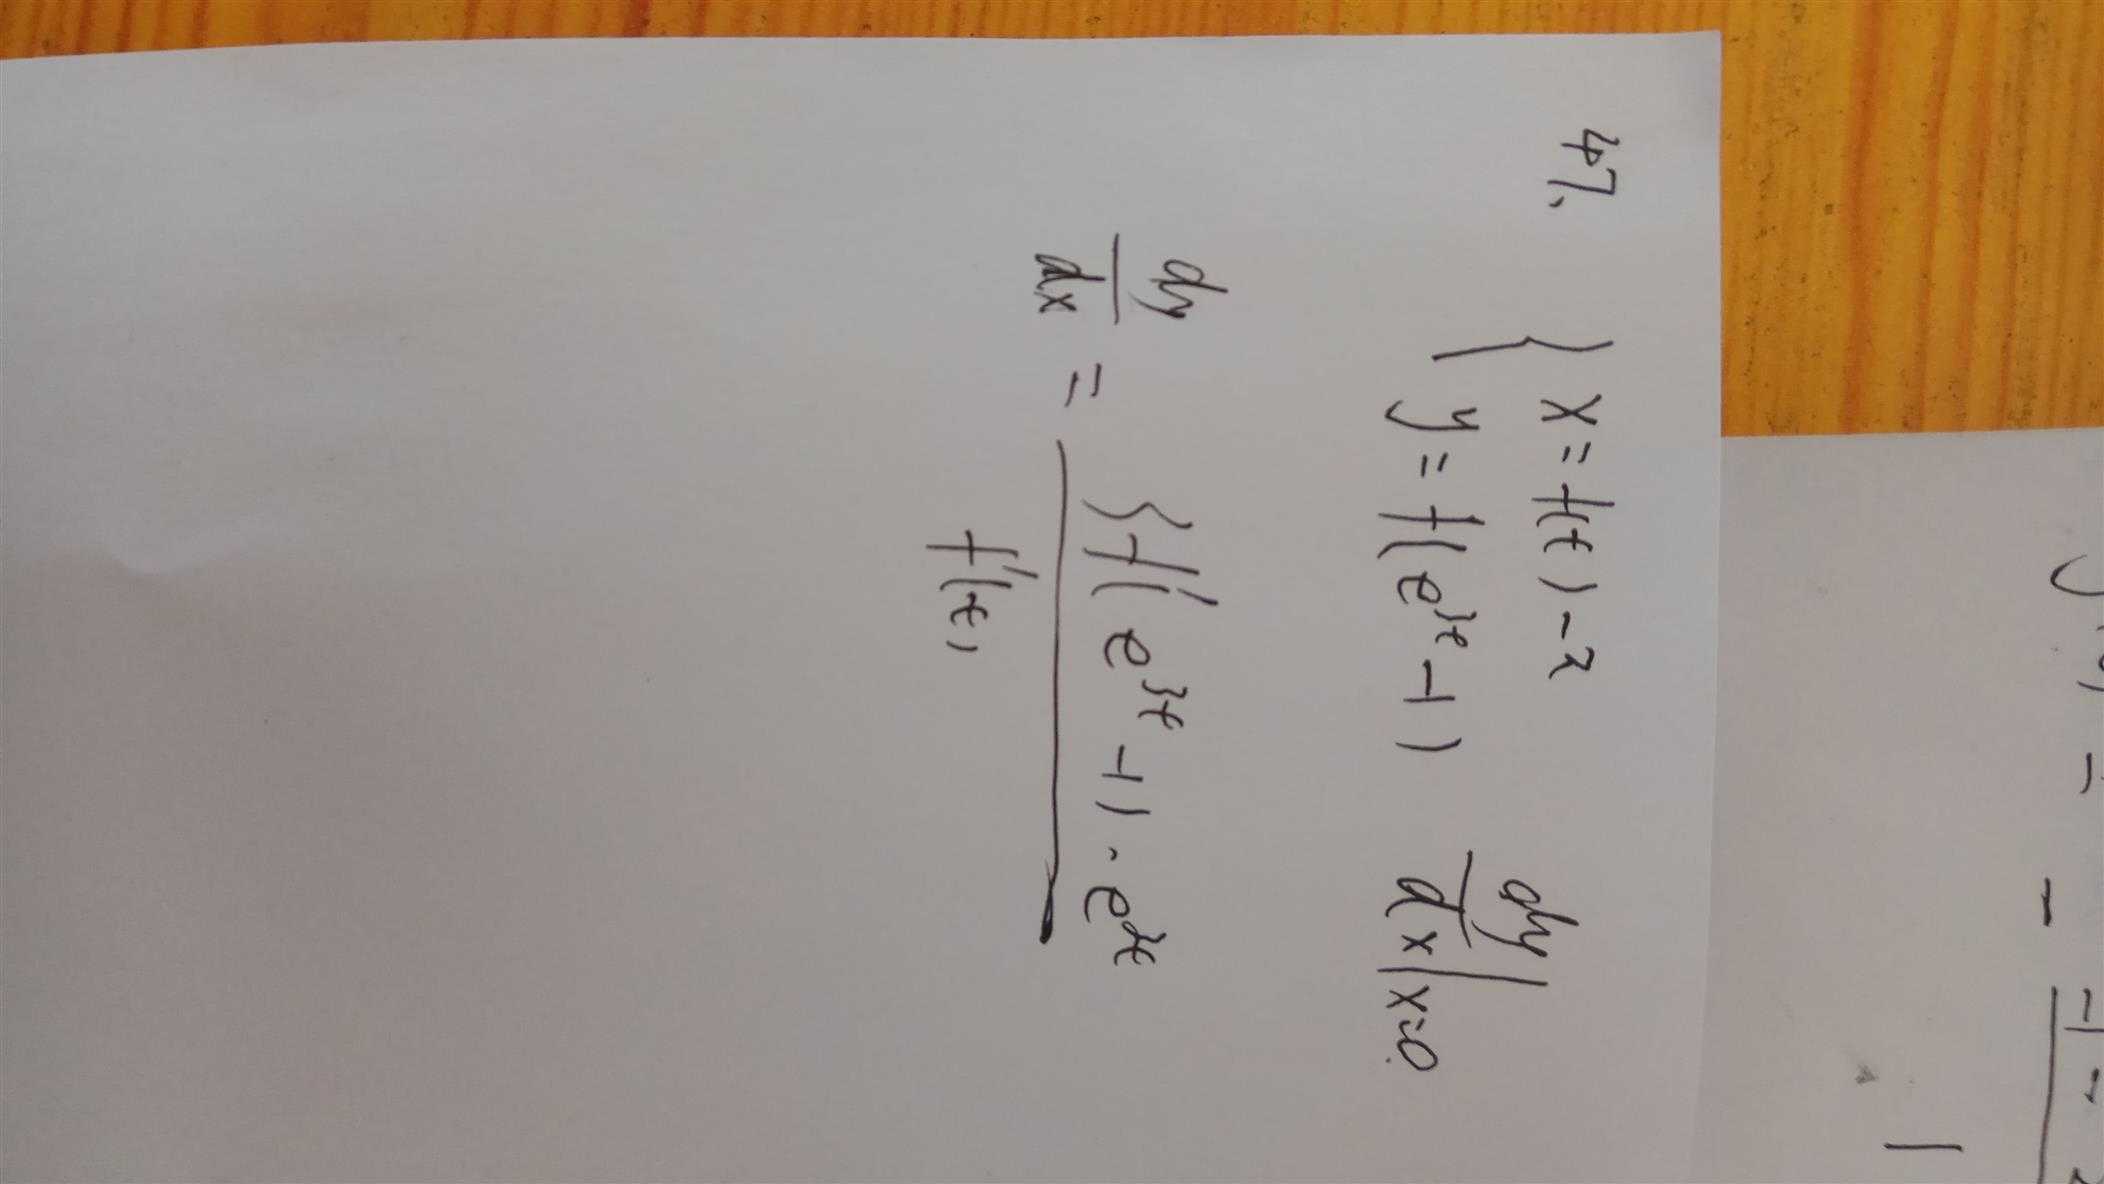 47. { x = f(t) - 2
y = f(e^{3t} - 1) dy/dx | x=0
dy/dx = 3f'(e^{3t} - 1) · e^{3t} / f'(t)